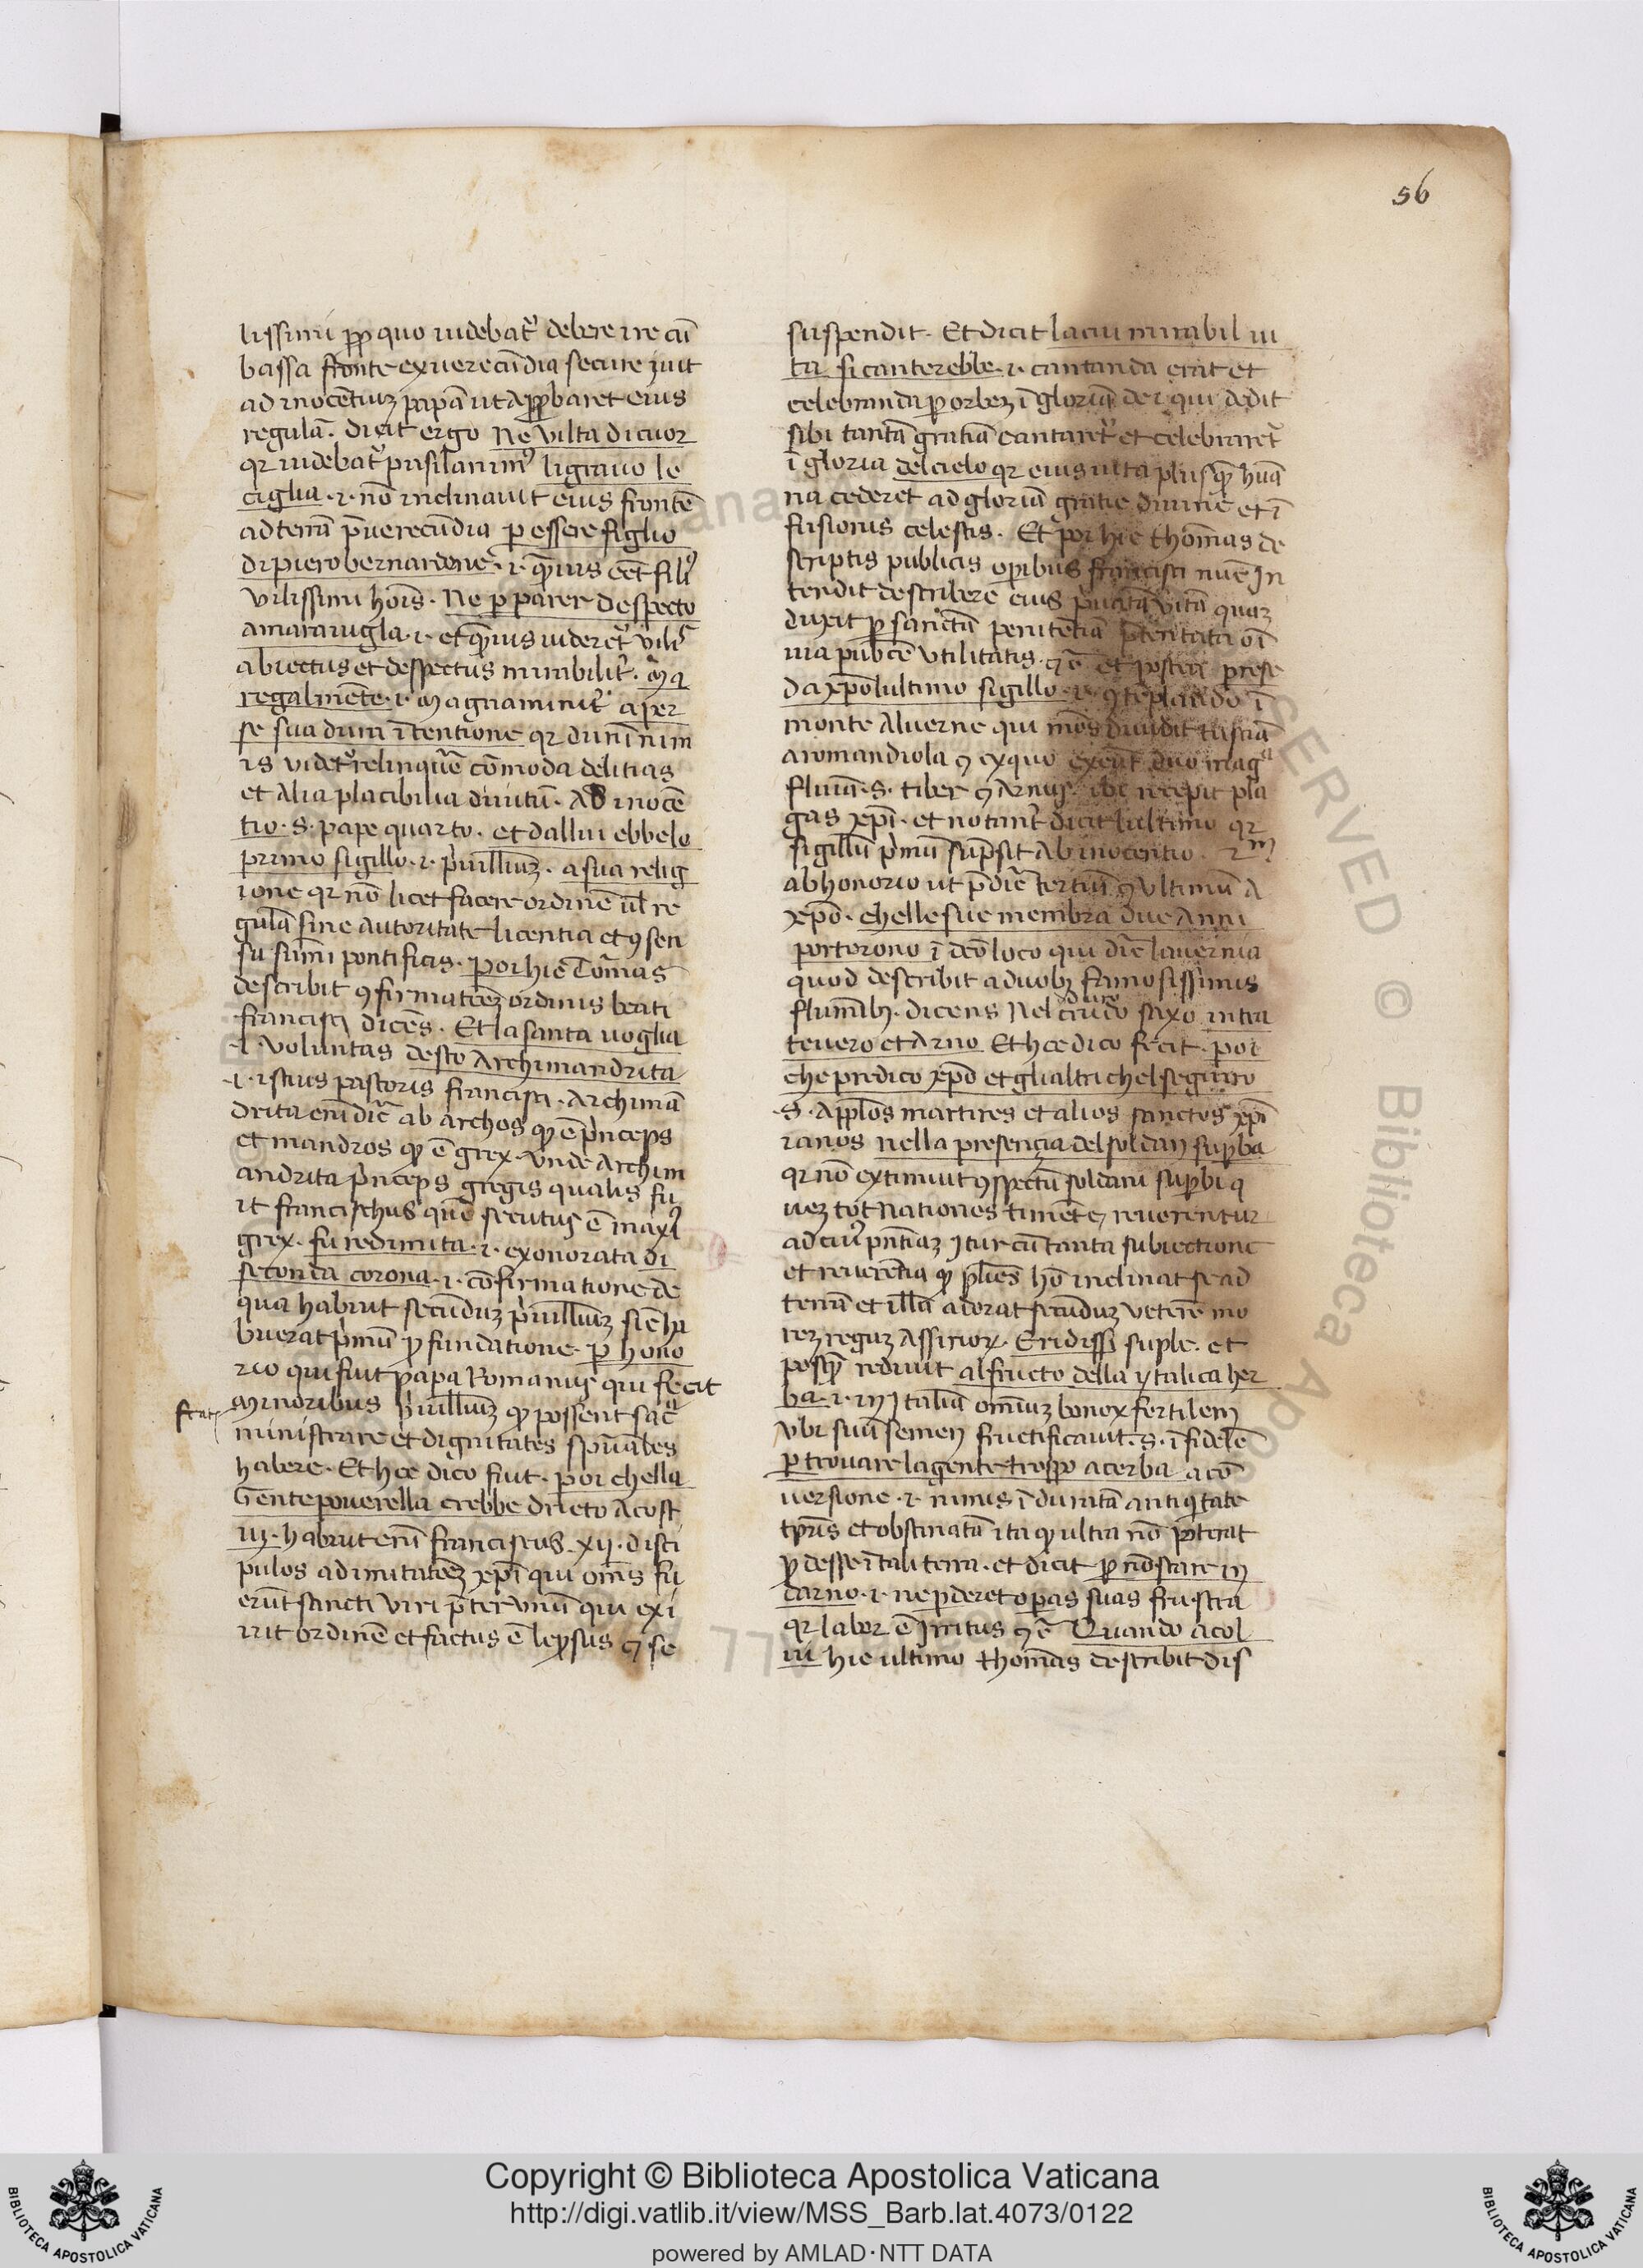 56
lissimi ꝓp quo uidebat᷑ debere ire cū
bassa fronte ex uerecūdia secure iuit
ad inocētiuȝ papā ut apꝓbaret eius
regulā. dicit ergo Ne vilta di cuor
qr uidebat᷑ pusilanimꝰ li grauo le
ciglia .i. nō inclinauit eius frontē
ad terrā p̄ uerecūdia ꝑ essere figlio
di piero bernardone .i. qꝫuis eēt filiꝰ
vilissimi hoīs. Ne ꝑ parer despecto
a marauigla .i. et qꝫuis uideret᷑ vilis
abiectus et despectus mirabilit᷑. Ma
regalmēte .i. magnanimit᷑ aper
se sua dura ītentione qr durū nim
is videt᷑ relinquē cōmoda delitias
et alia placibilia diuitū. Ad inocē
tio .s. pape quarto. et da llui ebbe lo
primo sigillo .i. p̄uillīuȝ. a sua relig
ione qr nō licet facere ordinē ul re
gulā sine autoritate licentia et ꝯsen
su sūmi pontificis. Poi hic Tomas
describit ꝯfirmatōeȝ ordinis beati
francisci dicēs. Et la santa uoglia
.i. voluntas desto archimandrita
.i. istius pastoris francisci. archimā
drita eni dic̄ ab archos qꝫ ē p̄nceps
et mandros qꝫ ē grex. vnde archim
andrita p̄nceps gregis qualis fu
it francischus quē secutus ē maxīꝰ
grex. fu redimita .i. exonorata di
seconda corona .i. cōfirmatione de
qua habuit secūduȝ p̄uillīuȝ sic ha
buerat p̄mū ꝓ fundatione. ꝑ hono
rio qui fuit papa Romanus qui fecit
frat᷑
minoribus p̄uillīuȝ qꝫ possent sac̄
ministrare et dignitates sp̄uāles
habere. Et hoc dico fiut. poi che lla
Gente pouerella crebbe drieto a cost
ui. habuit eni franciscus .xij. disci
pulos ad imitatōeȝ xp̄i qui om̄s fu
erūt sancti viri p̄ter vnū qui exi
uit ordinē et factus ē lep̄sus ꝯ se
suspendit. Et dicit la cui mirabil ui
ta si canterebbe .i. cantanda erat et
celebranda ꝑ orbeȝ ī gloriā dei qui dedit
sibi tantā gratiā cantaret᷑ et celebraret᷑
ī gloria del cielo qr eius uita plus qꝫ huā
na cederet ad gloriā gratie diuine et ī
fusionis celestis. Et poi hic thomas de
scriptis publicis oꝑibus francisci nūc in
tendit describere eius vitā quaȝ
duxit ꝑ sanctā penitētiā
da xp̄o l ultimo sigillo .i. ꝯtēplando ī
monte aluerne qui mōs diuidit tusciā
a romandiola ꝯ ex quo exeūt duo mag
fluīa .s. tiber ꝯ arnus ibi recepit pla
gas xp̄i. et notant᷑ dicit l ultimo qr
sigillū p̄mū sūpsit ab inocentio. 2m
ab honorio ut p̄dic̄ tertiū ꝯ ultimū a
xp̄o. che lle sue membra due anni
portorono ī dc̄o loco qui dic̄ lauernia
quod describit a duobȝ famosissimis
flumībȝ. dicens Nel crudo duro saxo intra
teuero et arno Et hoc dico fecit. poi
che predico xp̄o et gli altri che l seguiro
.s. appl̄os martires et alios sanctos xp̄i
ianos nella presenza del soldan suꝑba
qr nō extimuit ꝯspectū soldani suꝑbi q
ueȝ tot nationes timēt ꝯ reuerentur
ad ciuꝰ pn̄tiaȝ itur cū tanta subiectione
et reuerētia qꝫ pl̄ies hō inclinat se ad
terrā et illā adorat secūduȝ veterē mo
reȝ reguȝ assirioꝝ. Eridissi suple. et
postqꝫ rediuit al fructo della ytalica her
ba .i. in italiā omniuȝ bonoꝝ fertilem
vbi suū semen fructificauit .s. ī fidelē
ꝑ trouare la gente troppo acerba a cō
uersione .i. nimis ī duratā antiqtate
tp̄ris et obstinatā ita qꝫ ultra nō poterat
ꝓdesse ī tali terra. et dicit ꝑ nō stare in
darno .i. ne ꝑderet oꝑas suas frustra
qr labor ē irritus ꝯ ē Quando a col
ui hic ultimo thomas describit dis
Copyright © Biblioteca Apostolica Vaticana
http://digi.vatlib.it/view/MSS_Barb.lat.4073/0122
powered by AMLAD·NTT DATA
BIBLIOTECA APOSTOLICA VATICANA
BIBLIOTECA APOSTOLICA VATICANA